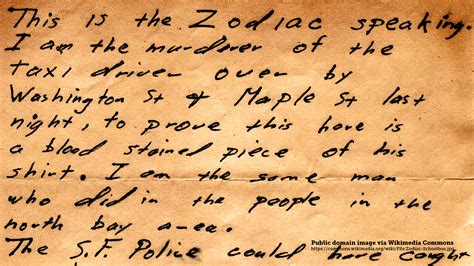 This is the Zodiac speaking.
I am the murderer of the
taxi driver over by
Washington St & Maple St last
night, to prove this here is
a blood stained piece of his
shirt. I am the same man
who did in the people in the
north bay area.
The S.F. Police could have caught
Public domain image via Wikimedia Commons
https://commons.wikimedia.org/wiki/File:Zodiac-Schoolbus.jpg